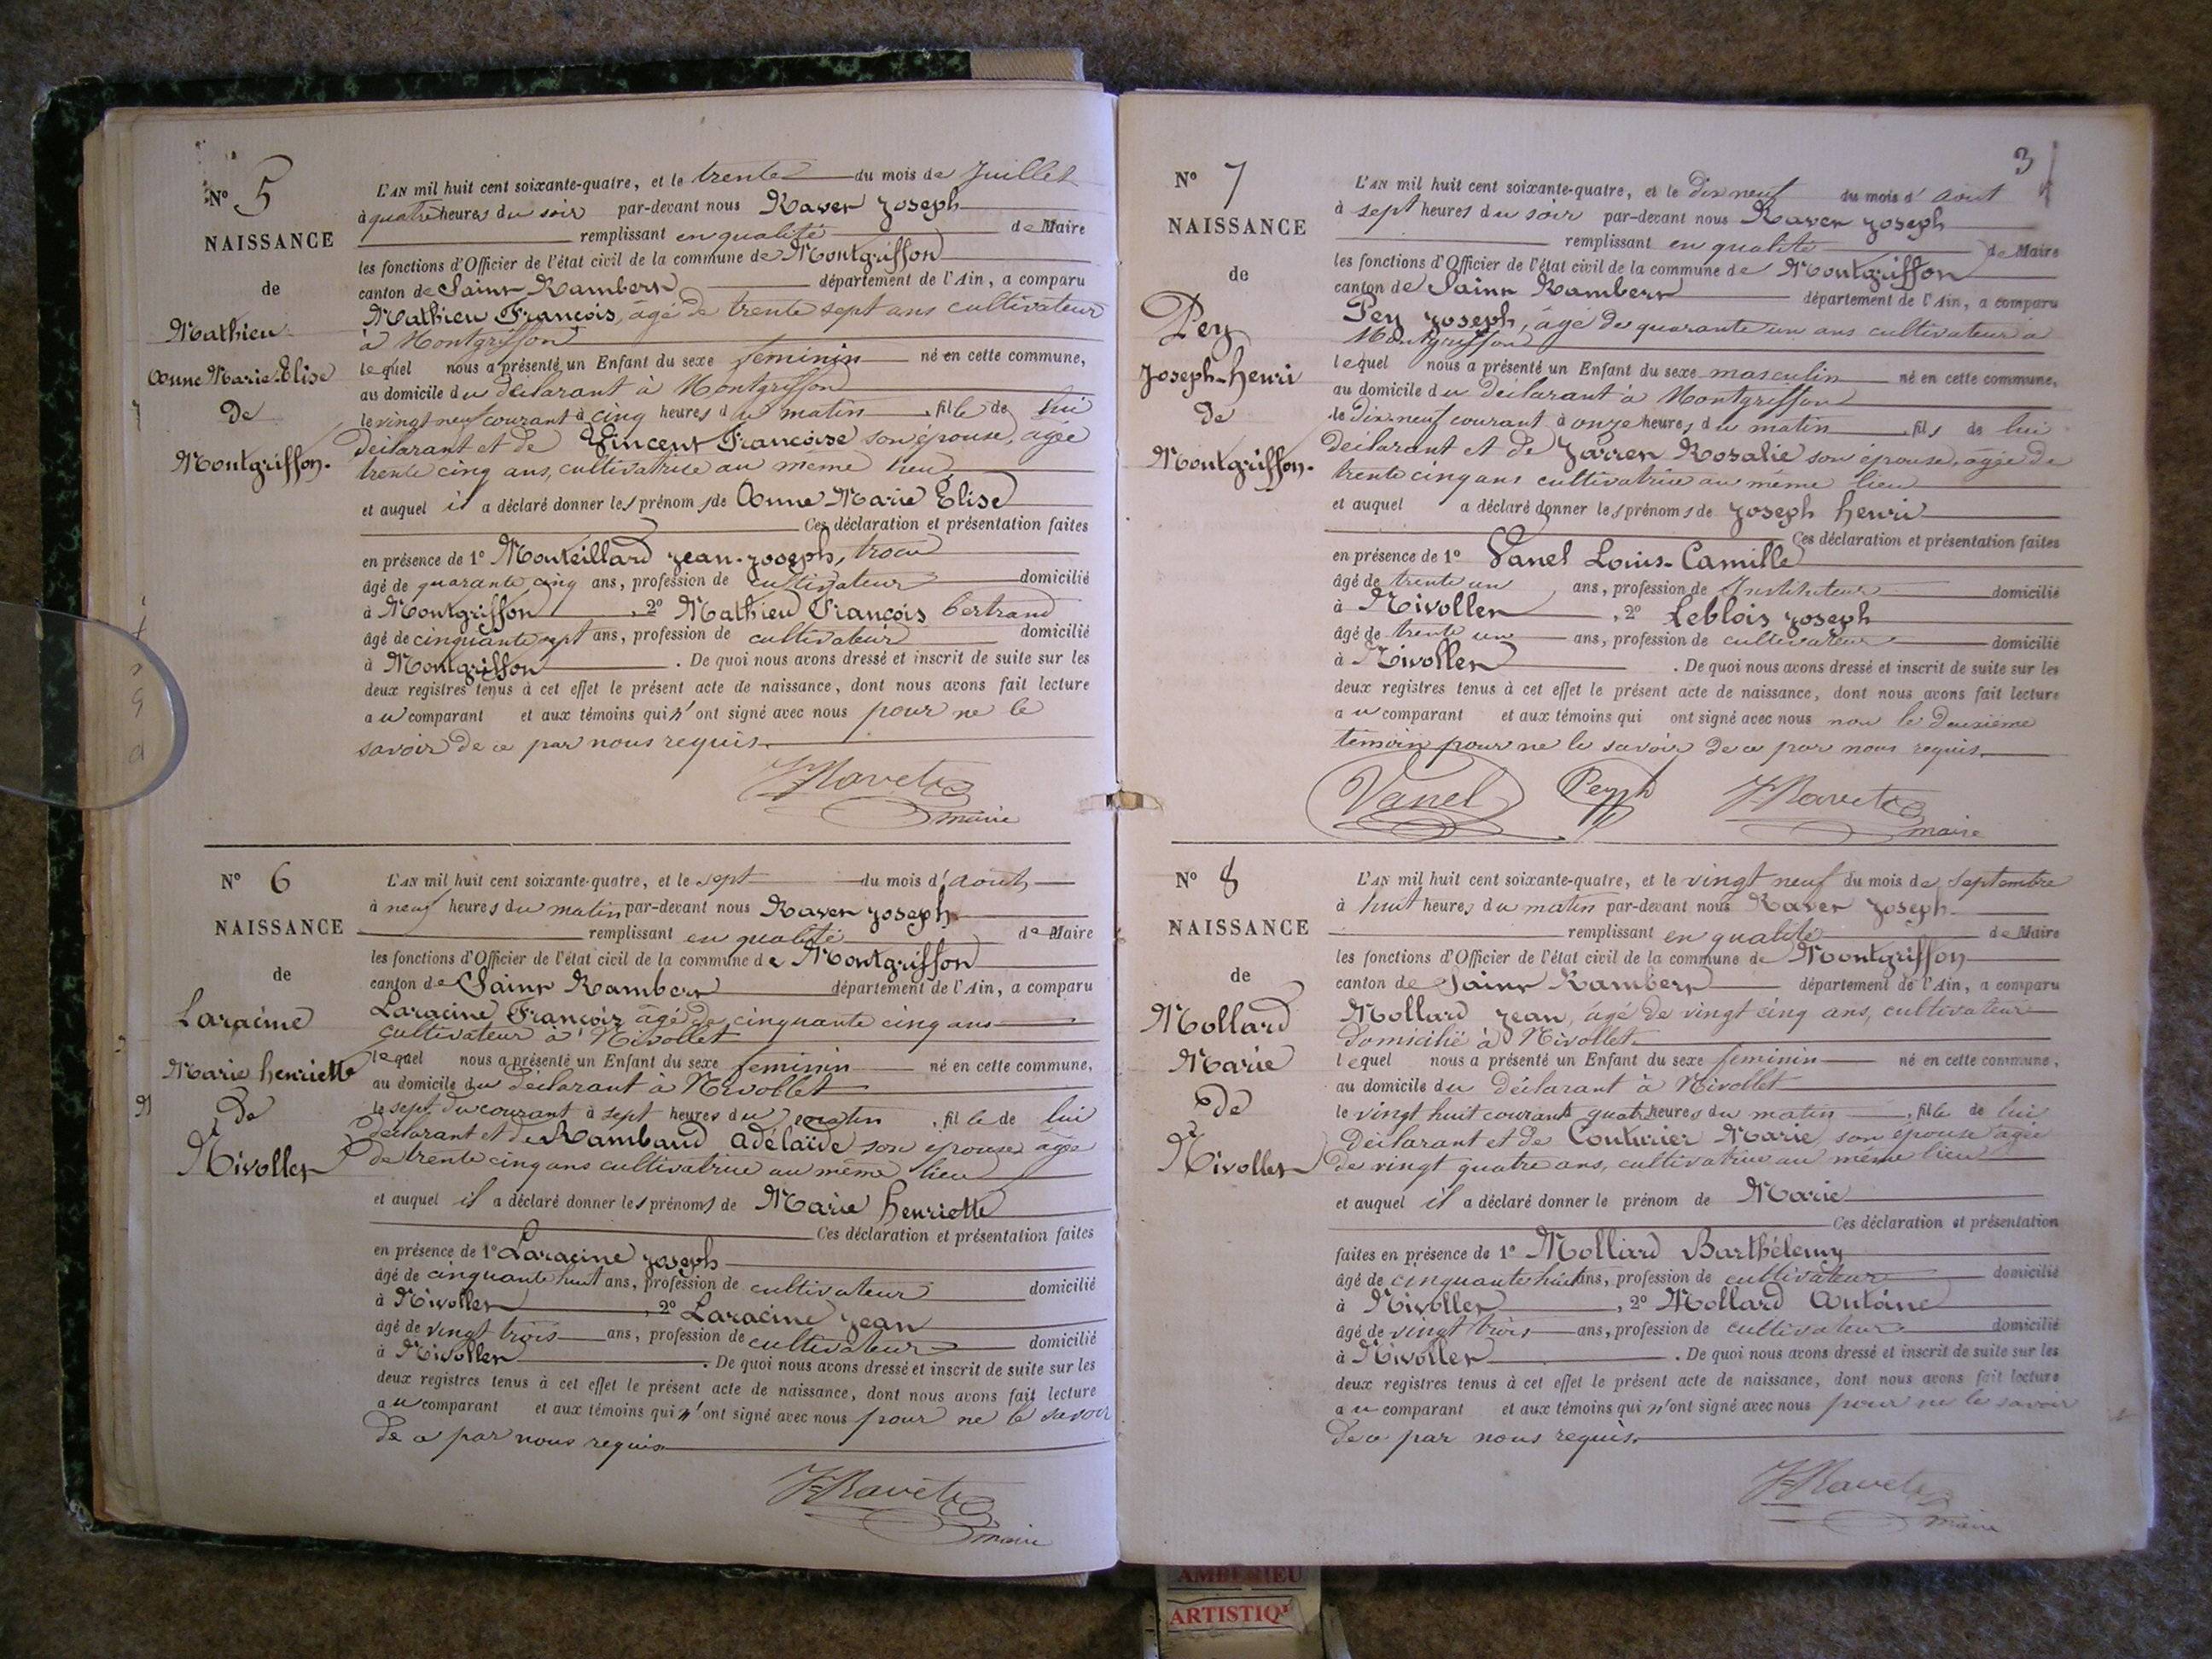 N° 5
NAISSANCE
de
Mathieu
Anne Marie Elise
de
Montgriffon.
L'AN mil huit cent soixante-quatre, et le trente du mois de Juillet
à quatre heures du soir par-devant nous Ravet Joseph
remplissant en qualité de Maire
les fonctions d'Officier de l'état civil de la commune de Montgriffon
canton de Saint Rambert département de l'Ain, a comparu
Mathieu François, âgé de trente sept ans cultivateur
à Montgriffon
lequel nous a présenté un Enfant du sexe feminin né en cette commune,
au domicile du déclarant à Montgriffon
le vingt neuf courant à cinq heures du matin , fille de lui
déclarant et de Vincent Françoise son épouse, agée
trente cinq ans, cultivatrice au même lieu
et auquel il a déclaré donner les prénoms de Anne Marie Elise
Ces déclaration et présentation faites
en présence de 1° Monteillard Jean-Joseph,
âgé de quarante cinq ans, profession de cultivateur domicilié
à Montgriffon , 2° Mathieu François bertrand
âgé de cinquante sept ans, profession de cultivateur domicilié
à Montgriffon . De quoi nous avons dressé et inscrit de suite sur les
deux registres tenus à cet effet le présent acte de naissance, dont nous avons fait lecture
au comparant et aux témoins qui n'ont signé avec nous pour ne le
savoir de ce par nous requis.
J. Ravet
maire
N° 6
NAISSANCE
de
Laracine
Marie henriette
de
Nivollet
L'AN mil huit cent soixante-quatre, et le sept du mois d'août
à neuf heures du matin par-devant nous Ravet Joseph
remplissant en qualité de Maire
les fonctions d'Officier de l'état civil de la commune de Montgriffon
canton de Saint Rambert département de l'Ain, a comparu
Laracine François âgé de cinquante cinq ans
cultivateur à Nivollet
lequel nous a présenté un Enfant du sexe feminin né en cette commune,
au domicile du déclarant à Nivollet
le sept du courant à sept heures du matin , fille de lui
déclarant et de Rambaud adelaïde son épouse agée
de trente cinq ans cultivatrice au même lieu
et auquel il a déclaré donner les prénoms de Marie henriette
Ces déclaration et présentation faites
en présence de 1° Laracine Joseph
âgé de cinquante huit ans, profession de cultivateur domicilié
à Nivollet , 2° Laracine Jean
âgé de vingt trois ans, profession de cultivateur domicilié
à Nivollet . De quoi nous avons dressé et inscrit de suite sur les
deux registres tenus à cet effet le présent acte de naissance, dont nous avons fait lecture
au comparant et aux témoins qui n'ont signé avec nous pour ne le savoir
de ce par nous requis
J. Ravet
maire
3
N° 7
NAISSANCE
de
Pey
Joseph-henri
de
Montgriffon.
L'AN mil huit cent soixante-quatre, et le dix neuf du mois d'aout
à sept heures du soir par-devant nous Ravet Joseph
remplissant en qualité de Maire
les fonctions d'Officier de l'état civil de la commune de Montgriffon
canton de Saint Rambert département de l'Ain, a comparu
Pey Joseph, âgé de quarante un ans cultivateur à
Montgriffon
lequel nous a présenté un Enfant du sexe masculin né en cette commune,
au domicile du déclarant à Montgriffon
le dix neuf courant à onze heures du matin , fils de lui
déclarant et de Jarren Rosalie son épouse, agée de
trente cinq ans cultivatrice au même lieu
et auquel a déclaré donner les prénoms de Joseph henri
Ces déclaration et présentation faites
en présence de 1° Vanel Louis-Camille
âgé de trente un ans, profession de Instituteur domicilié
à Nivollet , 2° Leblois Joseph
âgé de trente un ans, profession de cultivateur domicilié
à Nivollet . De quoi nous avons dressé et inscrit de suite sur les
deux registres tenus à cet effet le présent acte de naissance, dont nous avons fait lecture
au comparant et aux témoins qui ont signé avec nous non le deuxième
témoin pour ne le savoir de ce par nous requis.
Vanel Pey J. Ravet
maire
N° 8
NAISSANCE
de
Mollard
Marie
de
Nivollet
L'AN mil huit cent soixante-quatre, et le vingt neuf du mois de septembre
à huit heures du matin par-devant nous Ravet Joseph
remplissant en qualité de Maire
les fonctions d'Officier de l'état civil de la commune de Montgriffon
canton de Saint Rambert département de l'Ain, a comparu
Mollard Jean, âgé de vingt cinq ans, cultivateur
domicilié à Nivollet
lequel nous a présenté un Enfant du sexe féminin né en cette commune,
au domicile du déclarant à Nivollet
le vingt huit courant quatre heures du matin , fille de lui
déclarant et de Couturier Marie son épouse agée
de vingt quatre ans, cultivatrice au même lieu
et auquel il a déclaré donner le prénom de Marie
Ces déclaration et présentation
faites en présence de 1° Molliard Barthélemy
âgé de cinquante huit ans, profession de cultivateur domicilié
à Nivollet , 2° Mollard Antoine
âgé de vingt trois ans, profession de cultivateur domicilié
à Nivollet . De quoi nous avons dressé et inscrit de suite sur les
deux registres tenus à cet effet le présent acte de naissance, dont nous avons fait lecture
au comparant et aux témoins qui n'ont signé avec nous pour ne le savoir
de ce par nous requis.
J. Ravet
maire
AMBERIEU
ARTISTIQU